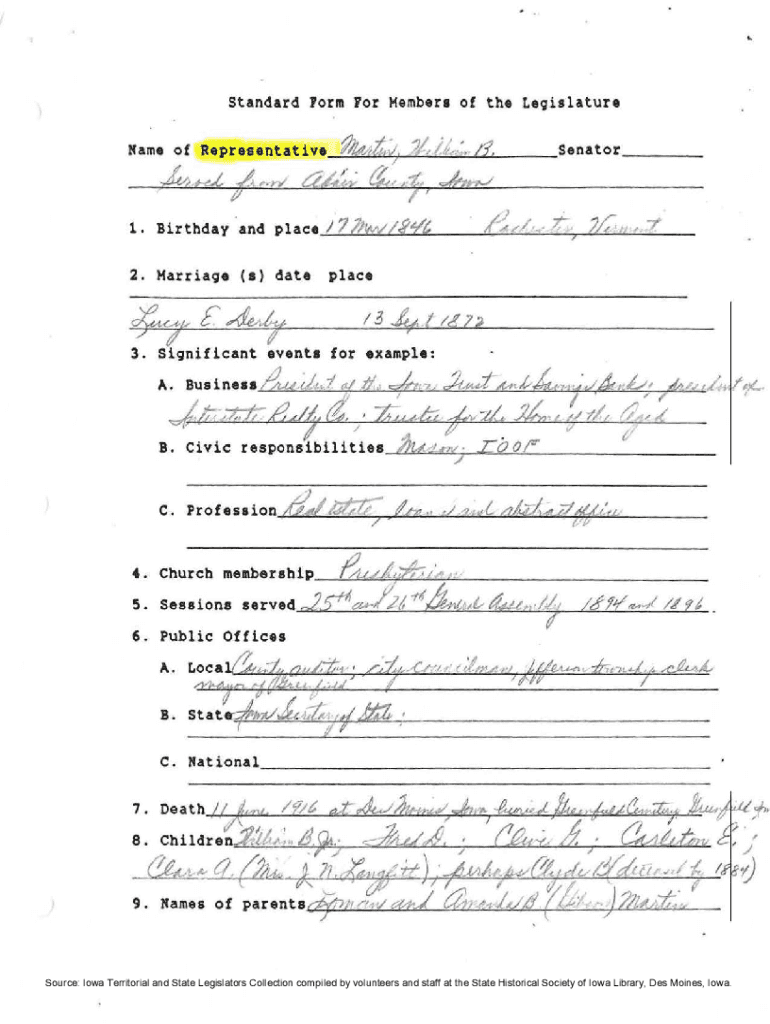 Standard Form For Members of the Legislature
Name of Representative Martin, William B. Senator
Served from Adair County, Iowa
1. Birthday and place 17 Mar 1846 Rochester, Vermont
2. Marriage (s) date place
Lucy E. Derby 13 Sept 1872
3. Significant events for example:
A. Business President of the Iowa Trust and Savings Bank; president of
Interstate Realty Co.; trustee for the Home of the Aged
B. Civic responsibilities Mason; IOOF
C. Profession Real estate, loan and abstract office
4. Church membership Presbyterian
5. Sessions served 25th and 26th General Assembly 1894 and 1896
6. Public Offices
A. Local County auditor; city councilman, Jefferson township clerk
mayor of Greenfield
B. State Iowa Secretary of State;
C. National
7. Death 11 June 1916 at Des Moines, Iowa, buried Greenfield Cemetery Greenfield
8. Children William B. Jr; Fred D.; Clive G.; Carleton E.;
Clara A. (Mrs. J. N. Langfitt); perhaps Clyde B (deceased by 1884)
9. Names of parents and Amanda B. Martin
Source: Iowa Territorial and State Legislators Collection compiled by volunteers and staff at the State Historical Society of Iowa Library, Des Moines, Iowa.